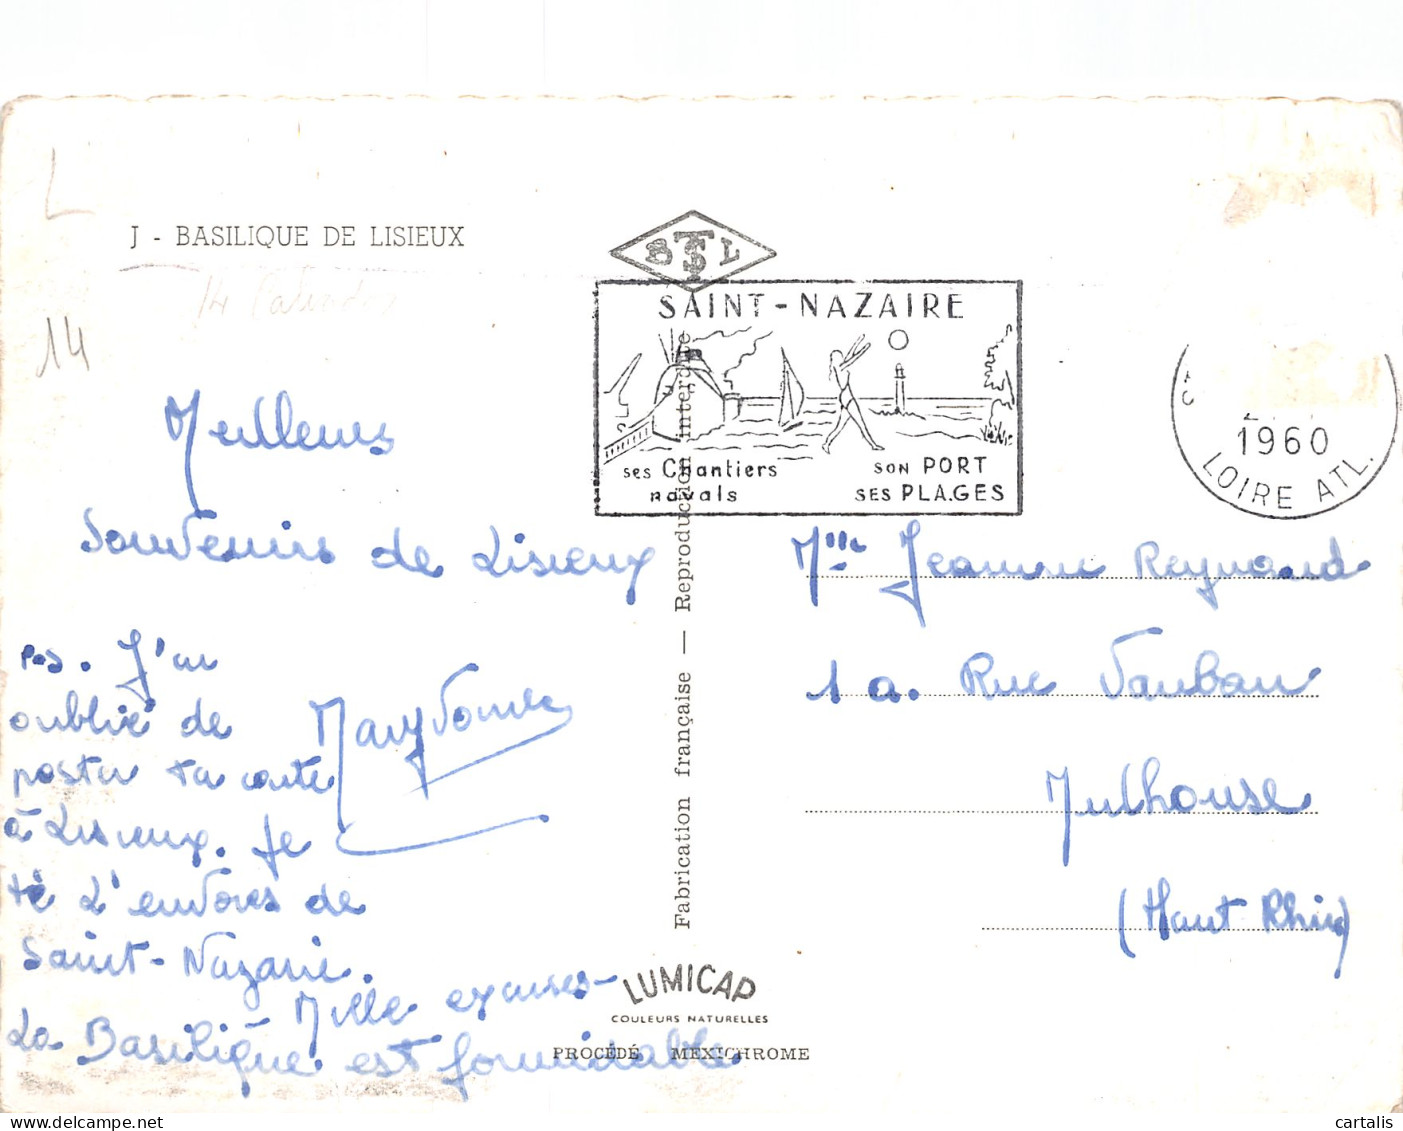 J - BASILIQUE DE LISIEUX
14
BSTL
SAINT-NAZAIRE
ses Chantiers navals
SON PORT
SES PLAGES
1960
LOIRE ATL.
Meilleurs
Souvenirs de Lisieux
Maryvonne
P.S. J'ai
oublié de
poster ta carte
à Lisieux. Je
te l'envoies de
Saint-Nazaire.
Mille excuses
La Basilique est formidable
Fabrication française — Reproduction interdite
Mlle Jeanne Reynaud
1 a. Rue Vauban
Mulhouse
(Haut Rhin)
LUMICAP
COULEURS NATURELLES
PROCÉDÉ MEXICHROME
cartalis